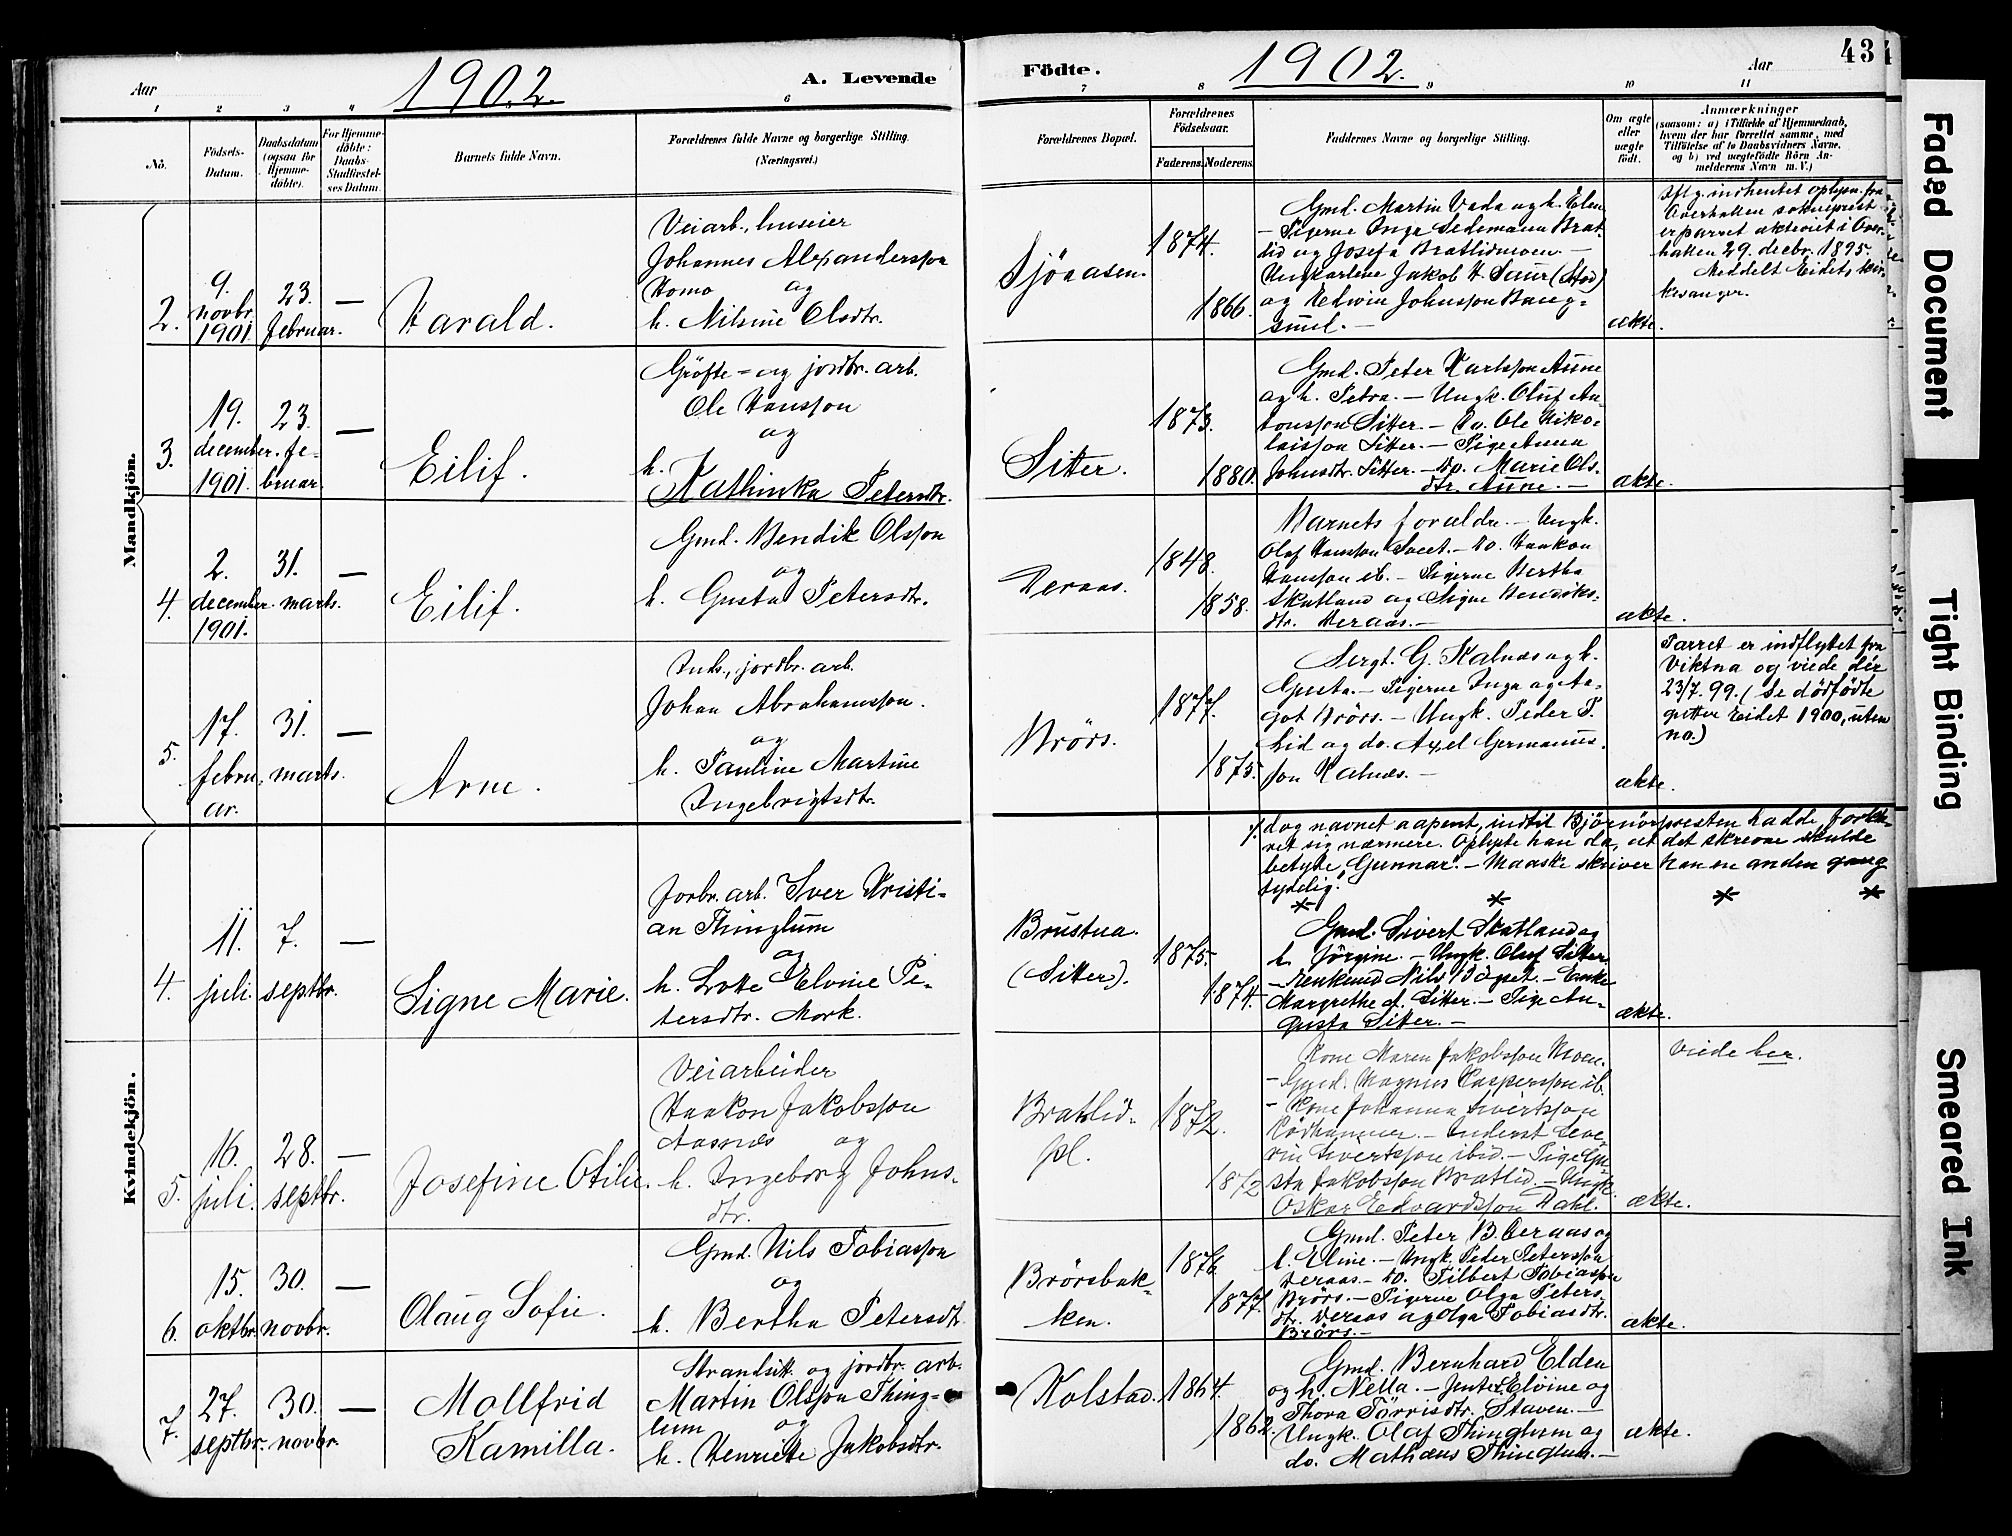 Aar
1902.
A. Levende
Födte.
1902.
Aar
43
1
2
3
4
6
7
8
9
10
11
No.
Födsels-
Datum.
Daabsdatum
(ogsaa for
Hjemme-
döbte).
For Hjemme-
döbte:
Daabs-
Stadfæstel-
ses Datum.
Barnets fulde Navn.
Forældrenes fulde Navne og borgerlige Stilling.
(Næringsvei.)
Forældrenes Bopæl.
Forældrenes
Födselsaar.
Faderens.
Moderens.
Faddernes Navne og borgerlige Stilling.
Om ægte
eller
uægte
födt.
Anmærkninger
(saasom: a) i Tilfælde af Hjemmedaab,
hvem der har forrettet samme, med
Tilföielse af to Daabsvidners Navne,
og b) ved uægtefödte Börn An-
melderens Navn m. V.)
Mandkjön.
2.
9.
novbr.
1901.
23.
februar.
—
Harald.
Veiarb., huseier
Johannes Alexandersson
Homo og
h. Nilsine Olsdtr.
Sjöaasen.
1874.
1866.
Gmd. Martin Vada og h. Elen
– Pigerne Inga Sedemann Brat-
lid og Josefa Bratlidmoen. –
Ungkarlene Jakob H. Saur (Stod)
og Edvin Johnsson Baug-
smel. –
ekte.
Iflg. indhentet oplysn. fra
Overhallen sokneprest
er parret ekteviet i Over-
hallen 29. decbr. 1895.
Meddelt Eidet, kir-
kesanger.
3.
19.
december
1901.
23.
fe-
bruar.
—
Eilif.
Gröfte- og jordbr. arb.
Ole Hansson
og
h.
Kathinka Petersdtr.
Sitter.
1873.
1880.
Gmd. Peter Karlsson Aune
og h. Petra. – Ungk. Oluf An-
tonsson Sitter. – Do. Ole Niko-
laisson Sitter. – Pige Anna
Johnsdtr. Sitter. – Do. Marie Ols-
dtr. Aune. –
ekte.
4.
2.
december.
1901.
31.
marts.
—
Eilif.
Gmd. Bendik Olsson
og
h. Gusta Petersdtr.
Deraas.
1848.
1858.
Barnets foraldre. – Ungk.
Olaf Hansson – Do. Haakon
Hansson ib. – Pigerne Bertha
Skatland og Signe Bendiks-
dtr. Deraas. –
ekte.
5.
17.
febru-
ar.
31.
marts.
—
Arne.
Inds., jordbr. arb.
Johan Abrahamsson.
og
h. Pauline Martine
Ingebrigtsdtr.
Brörs.
1877.
1875.
Sergt. G. Kalnæs og h.
Gusta. – Pigerne Inga og Aa-
got Brörs. – Ungk. Peder P.
Lid og do. Axel Germanus-
son Kalnæs. –
ekte.
Parret er indflyttet fra
Viktna og viede der
23/7. 99. (Se dödfödte
gutter Eidet 1900, uten
no.)
dog navnet aapent, indtil Björnörpresten hadde forkla-
ret sig nærmere. Oplyste han da, at det skrevne skulde
betyte „Gunnar". – Maaske skriver han en anden gang
tydelig.
* * * *
Kvindekjön.
4.
11.
juli.
7.
septbr.
—
Signe Marie.
Jorbr. arb. Iver Kristi-
an Thinglum
og
h. Lotte Elvine Pe-
tersdtr. Mork.
Brustua.
(Sitter).
1875.
1874.
Gmd. Sivert Skatland og
h. Jörgine. – Ungk. Oluf Sitter
– Enkemd Nils – Enke
Margrethe Sitter. – Pige Au-
gusta Sitter. –
ekte.
5.
16.
juli.
28.
septbr.
—
Josefine Otilie.
Veiarbeider
Haakon Jakobsson
Aasnes og
h. Ingeborg Johns-
dtr.
Bratlid-
pl.
1872.
1872
Kone Maren Jakobsson Moen.
– Gmd. Magnus Kaspersson ib.
– Kone Johanna Sivertsson
Rödhammer. – Inderst Seve-
rin Sivertsson ibid. – Pige Gu-
sta Jakobsson Bratlid. – Ungk.
Oskar Edvardsson Dahl.
ekte.
Viede her.
6.
15.
oktbr.
30.
novbr.
—
Olaug Sofie.
Gmd. Nils Tobiasson
og
h. Bertha Petersdtr.
Brörsbak-
ken.
1876.
1877.
Gmd. Peter B. Deraas og
h. Eline. – Ungk. Peder Petersson
Deraas. – Do. Tilbert Tobiasson
Brörs. – Pigerne Olga Peters-
dtr. Deraas og Olga Tobiasdtr.
Brörs. –
ekte.
7.
27.
septbr.
30.
novbr.
—
Mallfrid
Kamilla.
Strandsitt. og jordbr. arb.
Martin Olsson Thing-
lum og
h. Henriette Jakobsdtr.
Kolstad.
1864.
1862.
Gmd. Bernhard Elden
og h. Nella. – Jenter Elvine og
Thora Törrisdtr. Staven. –
Ungk. Olaf Thinglum og
do. Mathæus Thinglum. –
ekte.
Faded Document
Tight Binding
Smeared Ink